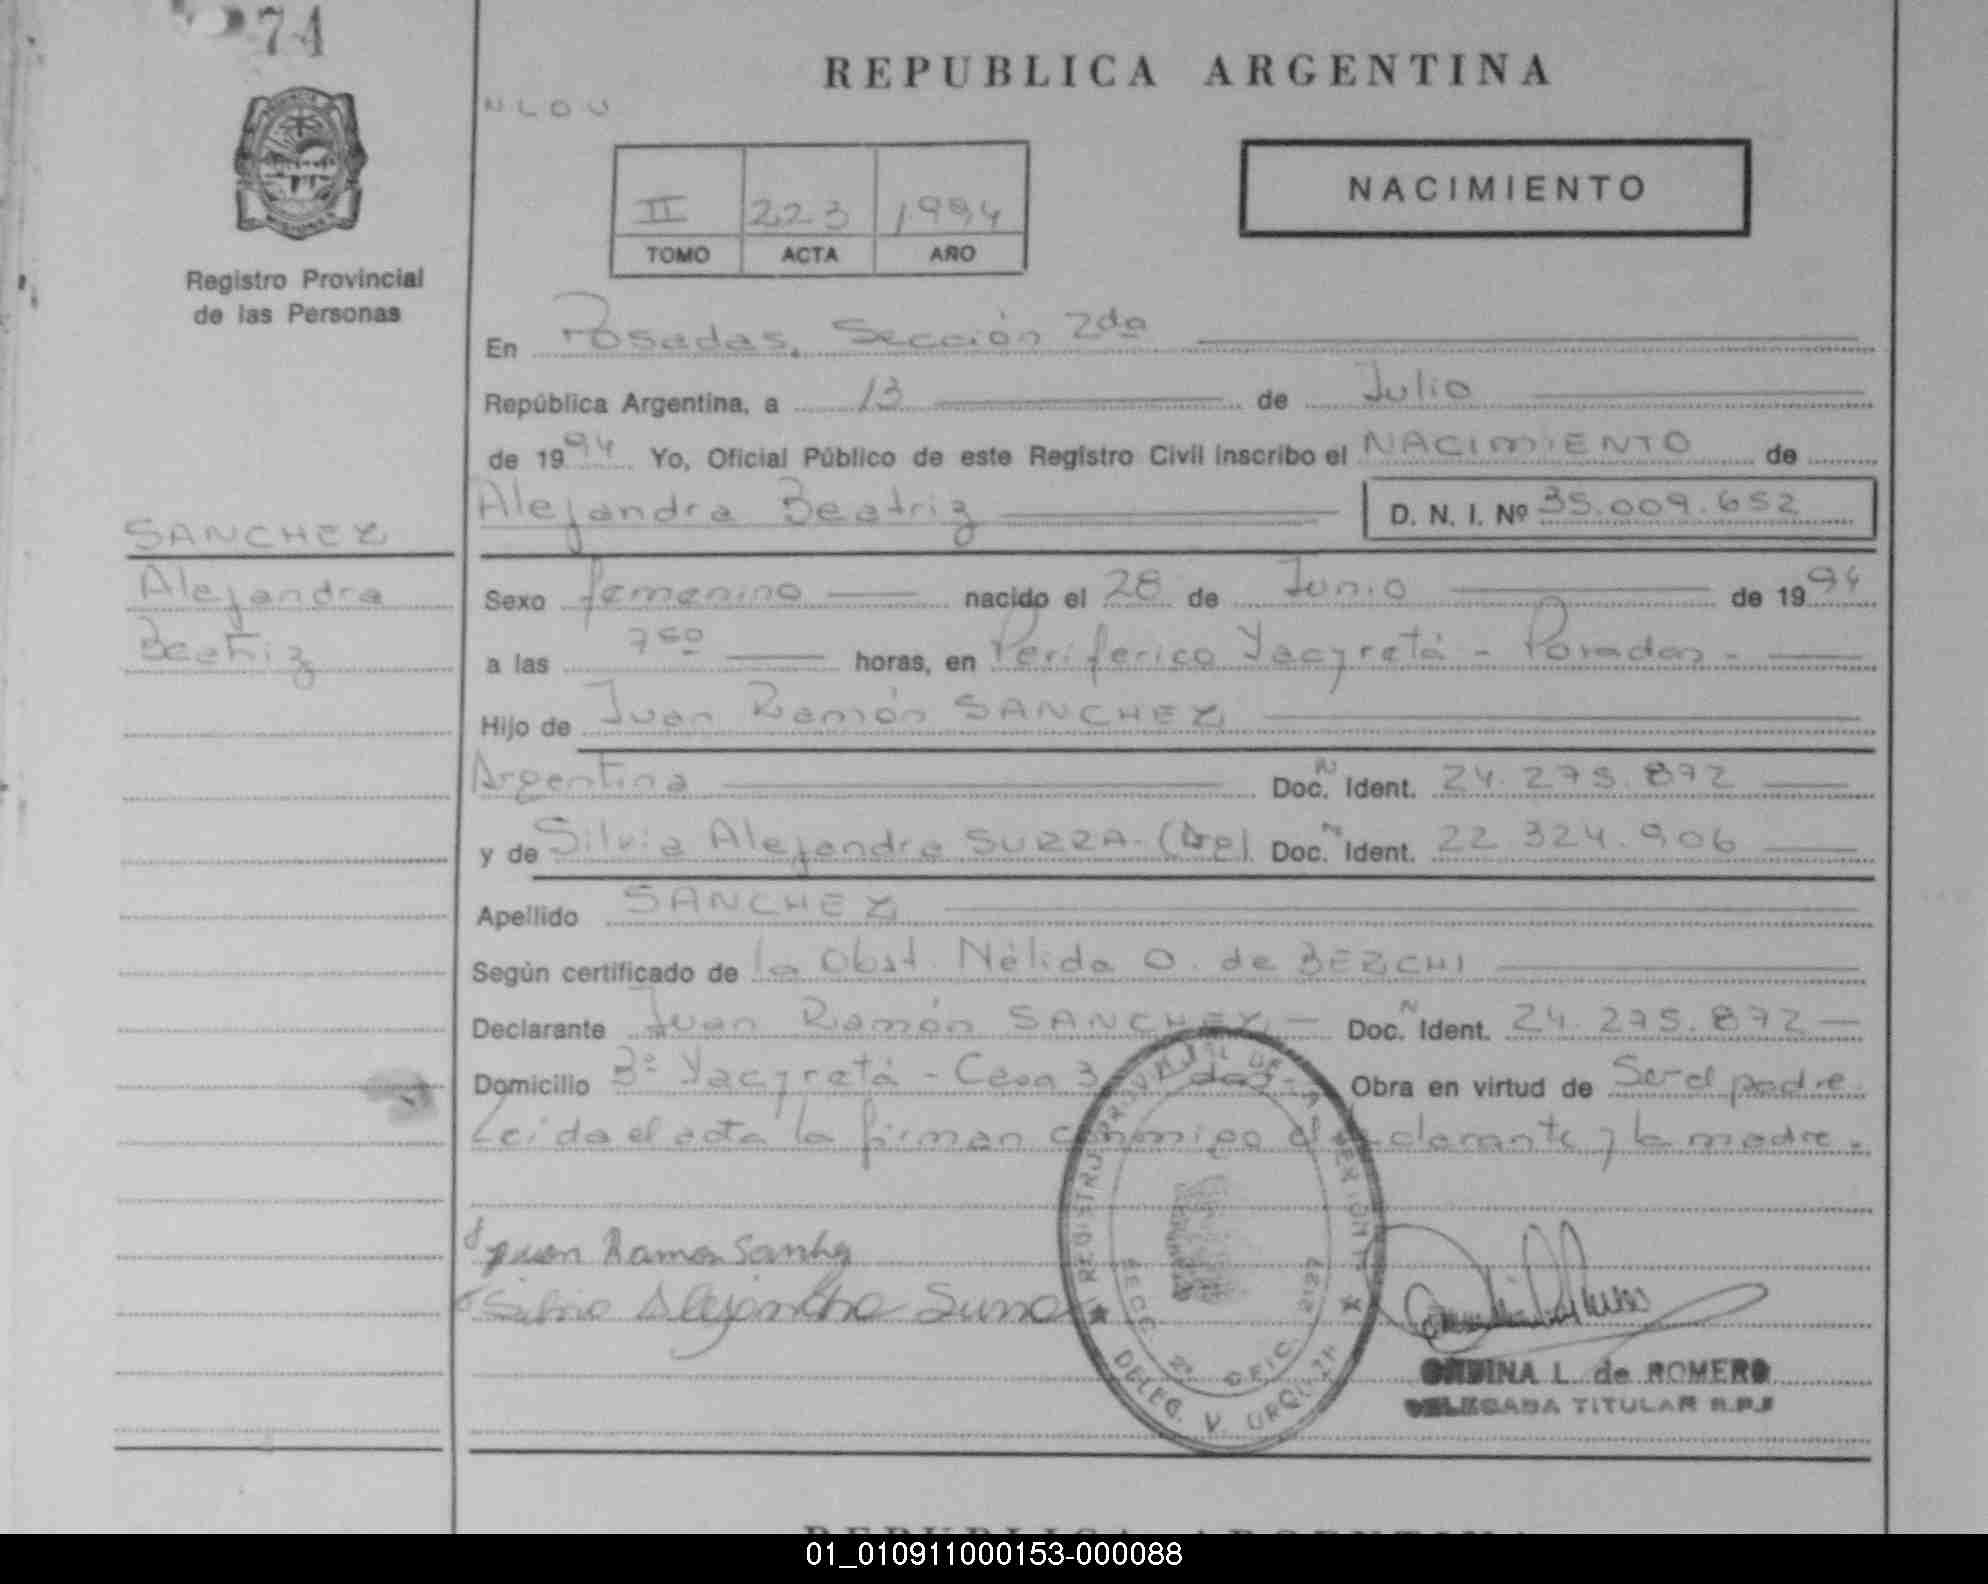 74
REPUBLICA ARGENTINA
NLOU
NACIMIENTO
II 223 1994
TOMO ACTA AÑO
Registro Provincial
de las Personas
En Posadas, Sección 2da
República Argentina, a 13 de Julio
de 1994 Yo, Oficial Público de este Registro Civil inscribo el NACIMIENTO de
Alejandra Beatriz D. N. I. Nº 35.009.652
SANCHEZ
Alejandra
Beatriz
Sexo femenino nacido el 28 de Junio de 1994
a las 7 horas, en Periferico Yacyretá - Posadas -
Hijo de Juan Ramón SANCHEZ
Argentina Doc. N Ident. 24.275.872
y de Silvia Alejandra SURRA - Doc. N Ident. 22.324.906
Apellido SANCHEZ
Según certificado de la Obst. Nélida O. de
Declarante Juan Ramón SANCHEZ - Doc. N Ident. 24.275.872 -
Domicilio Bº Yacyretá - Casa 3 Obra en virtud de Ser el padre.
Leida el acta la firman conmigo el declarante y la madre.
Juan Ramon Sanchez
Silvia Alejandra Surra
REGISTRO PROVINCIAL DE LAS PERSONAS
SECC. 2º OFIC. 2127
DELEG. V. URQUIZA
ONDINA L. de ROMERO
DELEGADA TITULAR R.P.P
REPUBLICA ARGENTINA
01_010911000153-000088